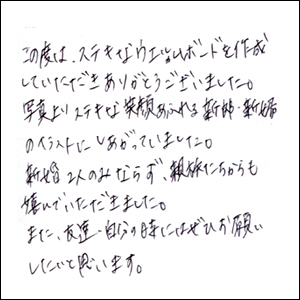 この度は、ステキなウェルカムボードを作成
していただきありがとうございました。
写真よりステキな笑顔あふれる新郎・新婦
のイラストにしあがっていました。
新婚2人のみならず、親族たちからも
喜んでいただきました。
また、友達・自分の時にはぜひお願い
したいと思います。